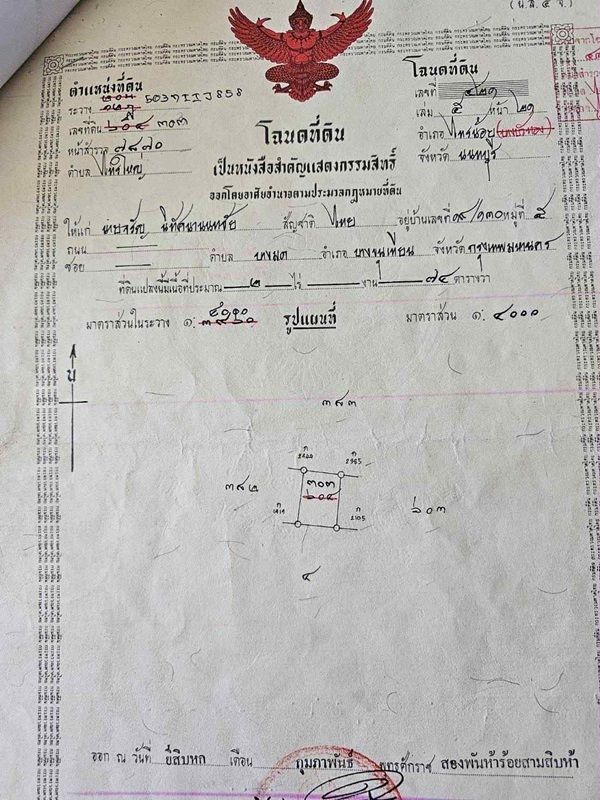 (น.ส. ๔ จ.)
ตำแหน่งที่ดิน
ระวาง 5037IIJ858
เลขที่ดิน ๓๐๓
หน้าสำรวจ ๗๘๗๐
ตำบล ไทรใหญ่
โฉนดที่ดิน
เลขที่ ๔๒๑
เล่ม ๕ หน้า ๒๑
อำเภอ ไทรน้อย
จังหวัด นนทบุรี
โฉนดที่ดิน
เป็นหนังสือสำคัญแสดงกรรมสิทธิ์
ออกโดยอาศัยอำนาจตามประมวลกฎหมายที่ดิน
ให้แก่ สัญชาติ ไทย อยู่บ้านเลขที่ หมู่ที่ ๕
ถนน
ซอย ตำบล บางมด อำเภอ บางขุนเทียน จังหวัด กรุงเทพมหานคร
ที่ดินแปลงนี้มีเนื้อที่ประมาณ ๒ ไร่ งาน ๗๔ ตารางวา
มาตราส่วนในระวาง ๑: รูปแผนที่ มาตราส่วน ๑: ๔๐๐๐
น
๓๘๓
๓๘๒
๓๐๓
๖๐๔
๖๐๓
๔
ออก ณ วันที่ ยี่สิบหก เดือน กุมภาพันธ์ พุทธศักราช สองพันห้าร้อยสามสิบห้า